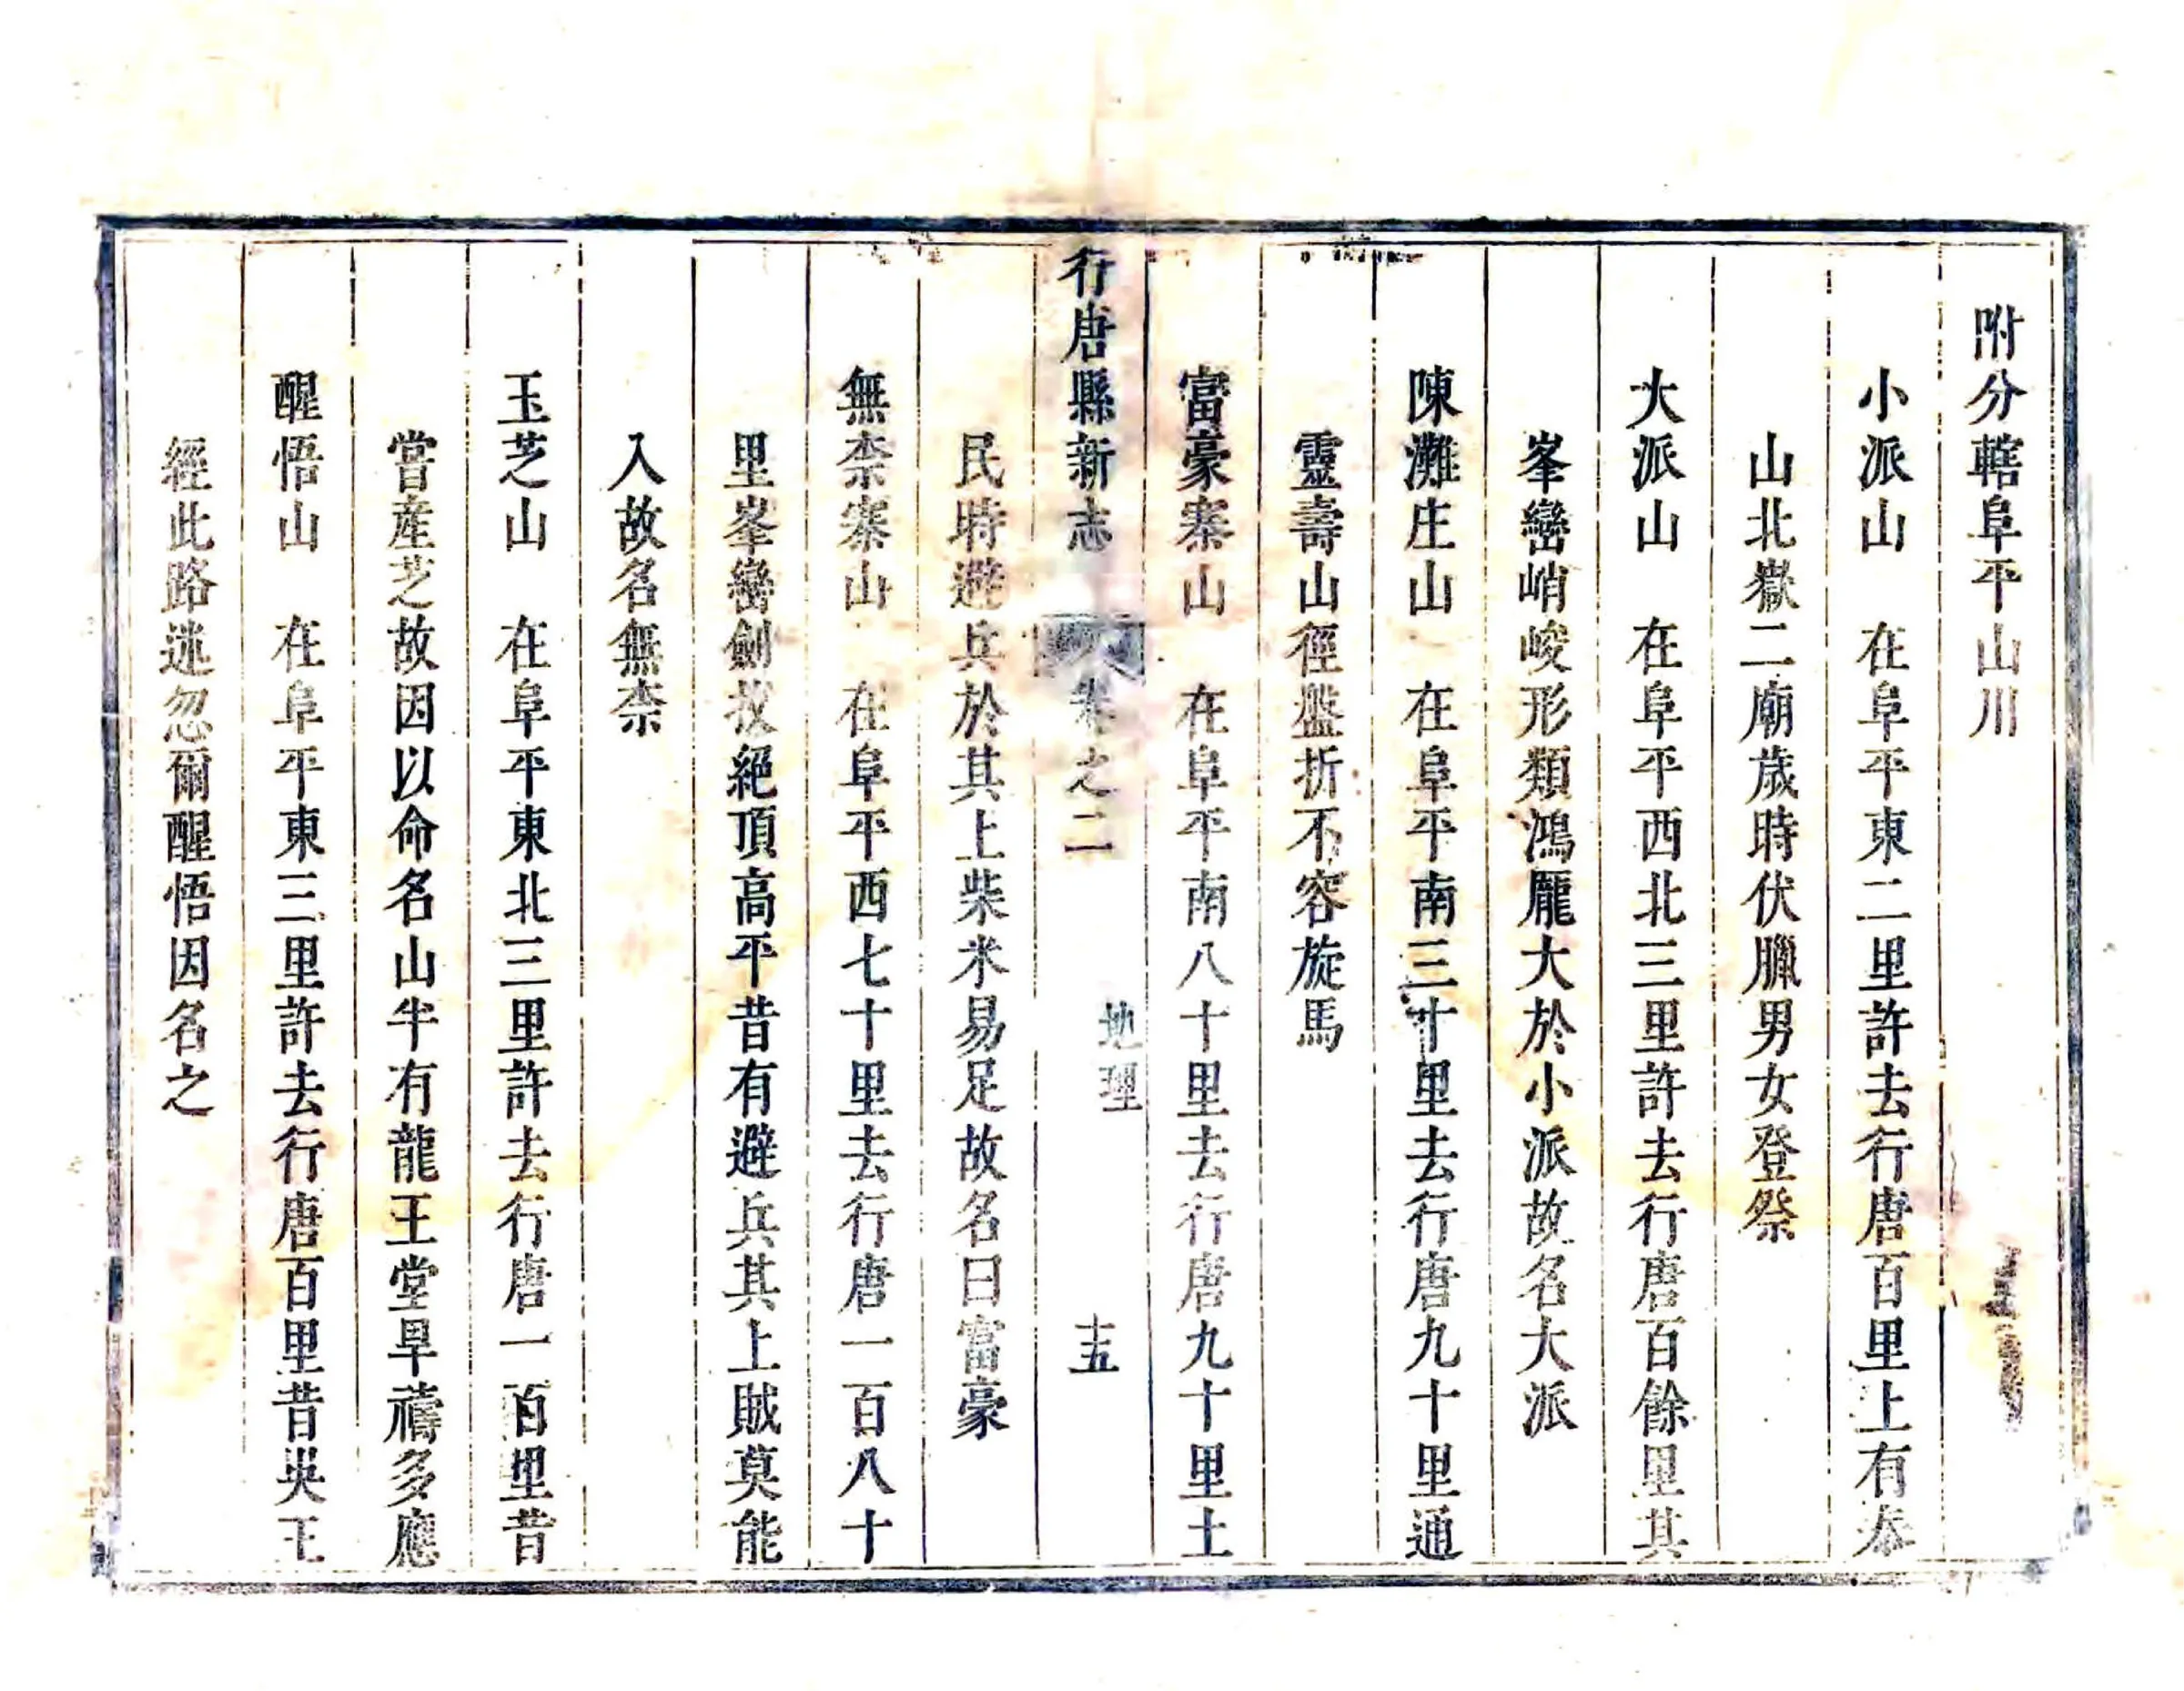 附分轄阜平山川
小派山　在阜平東二里許去行唐百里上有泰
山北嶽二廟歲時伏臘男女登祭
大派山　在阜平西北三里許去行唐百餘里其
峯巒峭峻形類鴻龐大於小派故名大派
陳灘庄山　在阜平南三十里去行唐九十里通
靈壽山徑盤折不容旋馬
富豪寨山　在阜平南八十里去行唐九十里土
行唐縣新志　卷之二　地理　十五
民時避兵於其上柴米易足故名曰富豪
無柰寨山　在阜平西七十里去行唐一百八十
里峯巒劍拔絕頂高平昔有避兵其上賊莫能
入故名無柰
玉芝山　在阜平東北三里許去行唐一百里昔
嘗産芝故因以命名山半有龍王堂旱禱多應
醒悟山　在阜平東三里許去行唐百里昔
經此路迷忽爾醒悟因名之